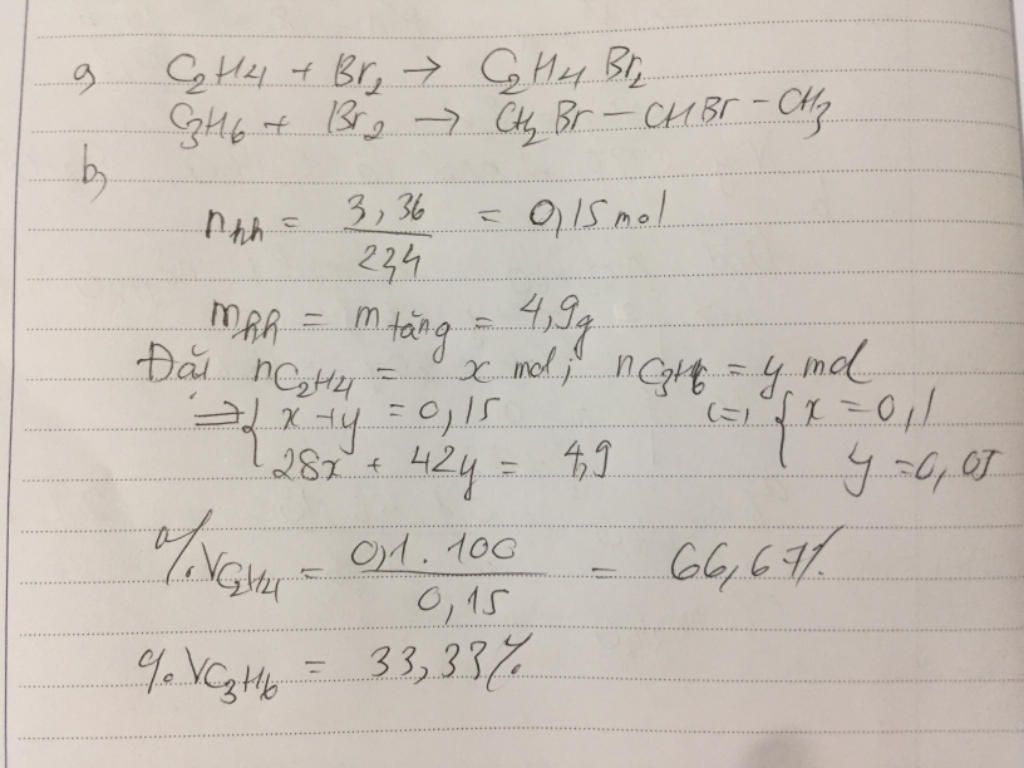 a) C₂H₄ + Br₂ → C₂H₄Br₂
C₃H₆ + Br₂ → CH₂Br - CHBr - CH₃
b)
n hh = 3,36 / 22,4 = 0,15 mol
m hh = m tăng = 4,9g
Đặt nC₂H₄ = x mol; nC₃H₆ = y mol
=> { x + y = 0,15 <=> { x = 0,1
28x + 42y = 4,9 y = 0,05
%VC₂H₄ = 0,1 . 100 / 0,15 = 66,67%
%VC₃H₆ = 33,33%